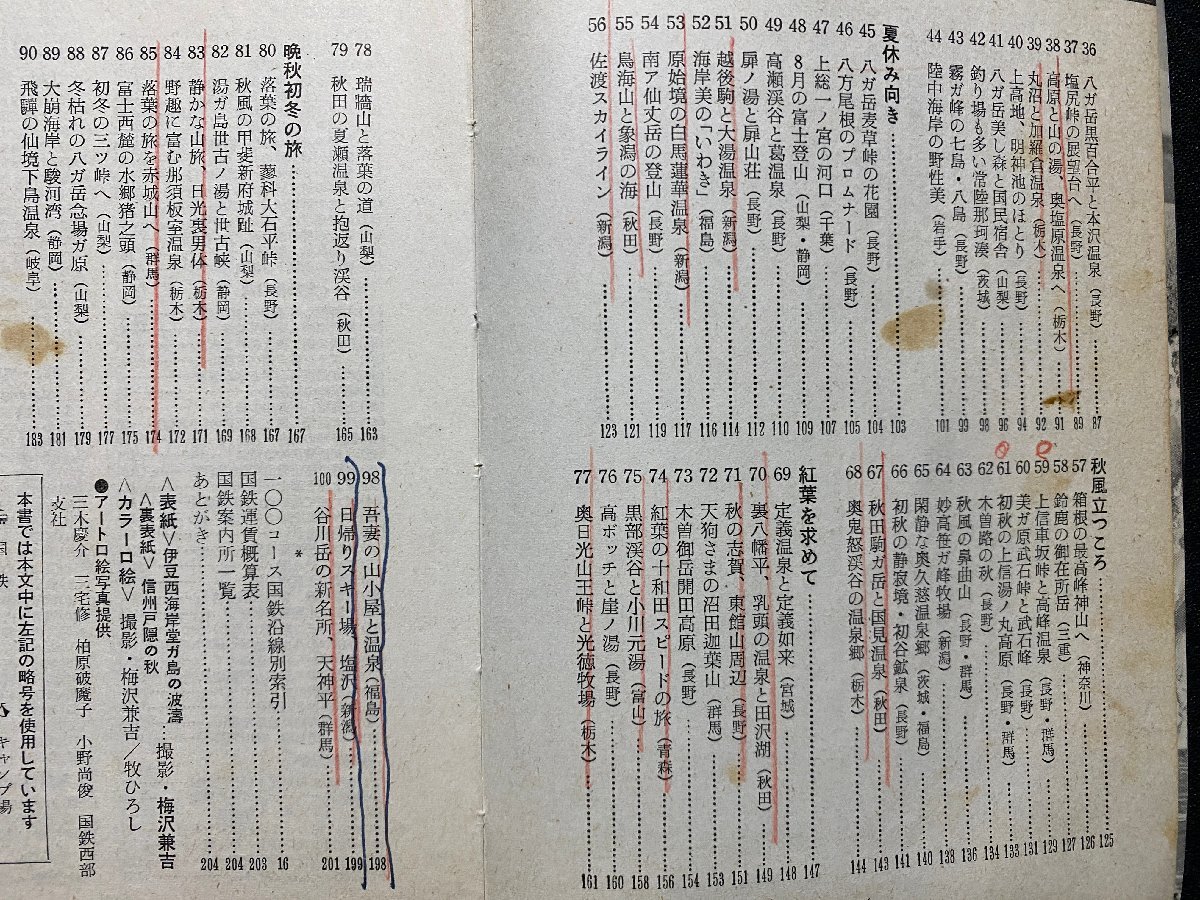 36 八ガ岳黒百合平と本沢温泉（長野）……87
37 塩尻峠の展望台へ（長野）……89
38 高原と山の湯、奥塩原温泉へ（栃木）……91
39 丸沼と加羅倉温泉（栃木）……92
40 上高地、明神池のほとり（長野）……94
41 八ガ岳美し森と国民宿舎（山梨）……96
42 釣り場も多い常陸那珂湊（茨城）……98
43 霧ガ峰の七島・八島（長野）……99
44 陸中海岸の野性美（岩手）……101
夏休み向き……103
45 八ガ岳麦草峠の花園（長野）……104
46 八方尾根のプロムナード（長野）……105
47 上総一ノ宮の河口（千葉）……107
48 8月の富士登山（山梨・静岡）……109
49 高瀬渓谷と葛温泉（長野）……110
50 扉ノ湯と扉山荘（長野）……112
51 越後駒と大湯温泉（新潟）……114
52 海岸美の「いわき」（福島）……116
53 原始境の白馬蓮華温泉（新潟）……117
54 南ア仙丈岳の登山（長野）……119
55 鳥海山と象潟の海（秋田）……121
56 佐渡スカイライン（新潟）……123
秋風立つころ……125
57 箱根の最高峰神山へ（神奈川）……126
58 鈴鹿の御在所岳（三重）……127
59 上信車坂峠と高峰温泉（長野・群馬）……129
60 美ガ原武石峠と武石峰（長野）……131
61 初秋の上信湯ノ丸高原（長野・群馬）……133
62 木曽路の秋（長野）……134
63 秋風の鼻曲山（長野・群馬）……136
64 妙高笹ガ峰牧場（新潟）……138
65 閑静な奥久慈温泉郷（茨城・福島）……140
66 初秋の静寂境・初谷鉱泉（長野）……141
67 秋田駒ガ岳と国見温泉（秋田）……143
68 奥鬼怒渓谷の温泉郷（栃木）……144
紅葉を求めて……147
69 定義温泉と定義如来（宮城）……148
70 裏八幡平、乳頭の温泉と田沢湖（秋田）……149
71 秋の志賀、東館山周辺（長野）……151
72 天狗さまの沼田迦葉山（群馬）……153
73 木曽御岳開田高原（長野）……154
74 紅葉の十和田スピードの旅（青森）……156
75 黒部渓谷と小川元湯（富山）……158
76 高ボッチと崖ノ湯（長野）……160
77 奥日光山王峠と光徳牧場（栃木）……161
78 瑞牆山と落葉の道（山梨）……163
79 秋田の夏瀬温泉と抱返り渓谷（秋田）……165
晩秋初冬の旅……167
80 落葉の旅、蓼科大石平峠（長野）……167
81 秋風の甲斐新府城趾（山梨）……168
82 湯ガ島世古ノ湯と世古峡（静岡）……169
83 静かな山旅、日光裏男体（栃木）……171
84 野趣に富む那須板室温泉（栃木）……172
85 落葉の旅を赤城山へ（群馬）……174
86 富士西麓の水郷猪之頭（静岡）……175
87 初冬の三ツ峠へ（山梨）……177
88 冬枯れの八ガ岳念場ガ原（山梨）……179
89 大崩海岸と駿河湾（静岡）……181
90 飛驒の仙境、下島温泉（岐阜）……183
98 吾妻の山小屋と温泉（福島）……198
99 日帰りスキー場、塩沢（新潟）……199
100 谷川岳の新名所、天神平（群馬）……201
＊
一〇〇コース国鉄沿線別索引……16
国鉄運賃概算表……203
国鉄案内所一覧……204
あとがき……204
〈表紙〉伊豆西海岸堂ガ島の波濤……撮影・梅沢兼吉
〈裏表紙〉信州戸隠の秋
〈カラー口絵〉撮影・梅沢兼吉／牧ひろし
●アート口絵写真提供
三木慶介 三宅修 柏原破魔子 小野尚俊 国鉄西部
支社
本書では本文中に左記の略号を使用しています
キャンプ場